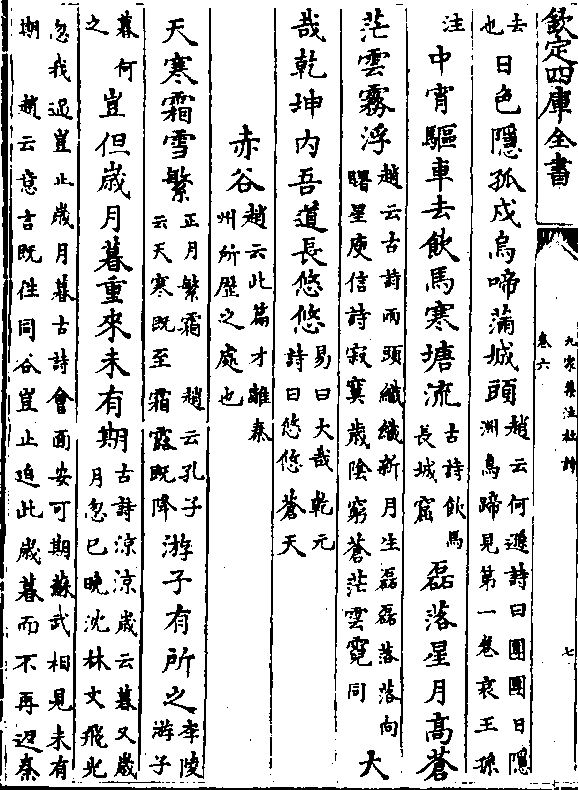 欽定四庫全書
九家集注杜詩
卷六
七
去也日色隱孤戍烏啼滿城頭趙云何遜詩曰團團日隱洲烏啼見第一卷哀王孫
注中宵驅車去飲馬寒塘流古詩飲馬長城窟磊落星月高蒼
茫雲霧浮趙云古詩兩頭纖纖新月生磊磊落落向曙星庾信詩寂寞歲陰窮蒼茫雲霓同大
哉乾坤内吾道長悠悠易曰大哉乾元詩曰悠悠蒼天
赤谷趙云此篇才離秦州所歷之處也
天寒霜雪繁正月繁霜趙云孔子云天寒既至霜露既降游子有所之李陵游子
暮何之豈但歲月暮重來未有期古詩涼涼歲云暮又歲月忽已晚沈林文飛光
忽我遒豈止歲月暮古詩會面安可期蘇武相見未有期趙云意言既往同谷豈止迫此歲暮而不再迟秦